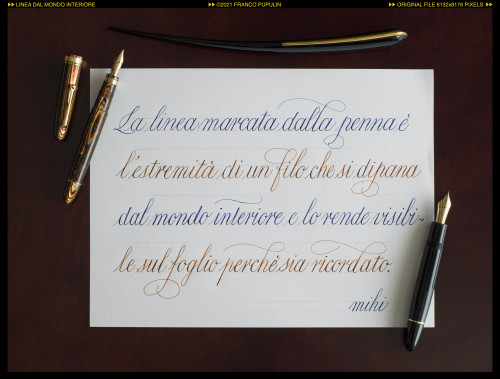 LINEA DAL MONDO INTERIORE ©2021 FRANCO PUPULIN ORIGINAL FILE 6132x8176 PIXELS
La linea marcata dalla penna è
l'estremità di un filo che si dipana
dal mondo interiore e lo rende visibi-
le sul foglio perchè sia ricordato.
mihi